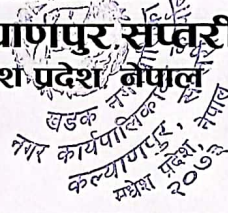 याणपुर, सप्तरी
श प्रदेश, नेपाल
खडक नगर
नगर कार्यपालिका
कल्याणपुर,
मधेश प्रदेश, नेपाल
२०७३